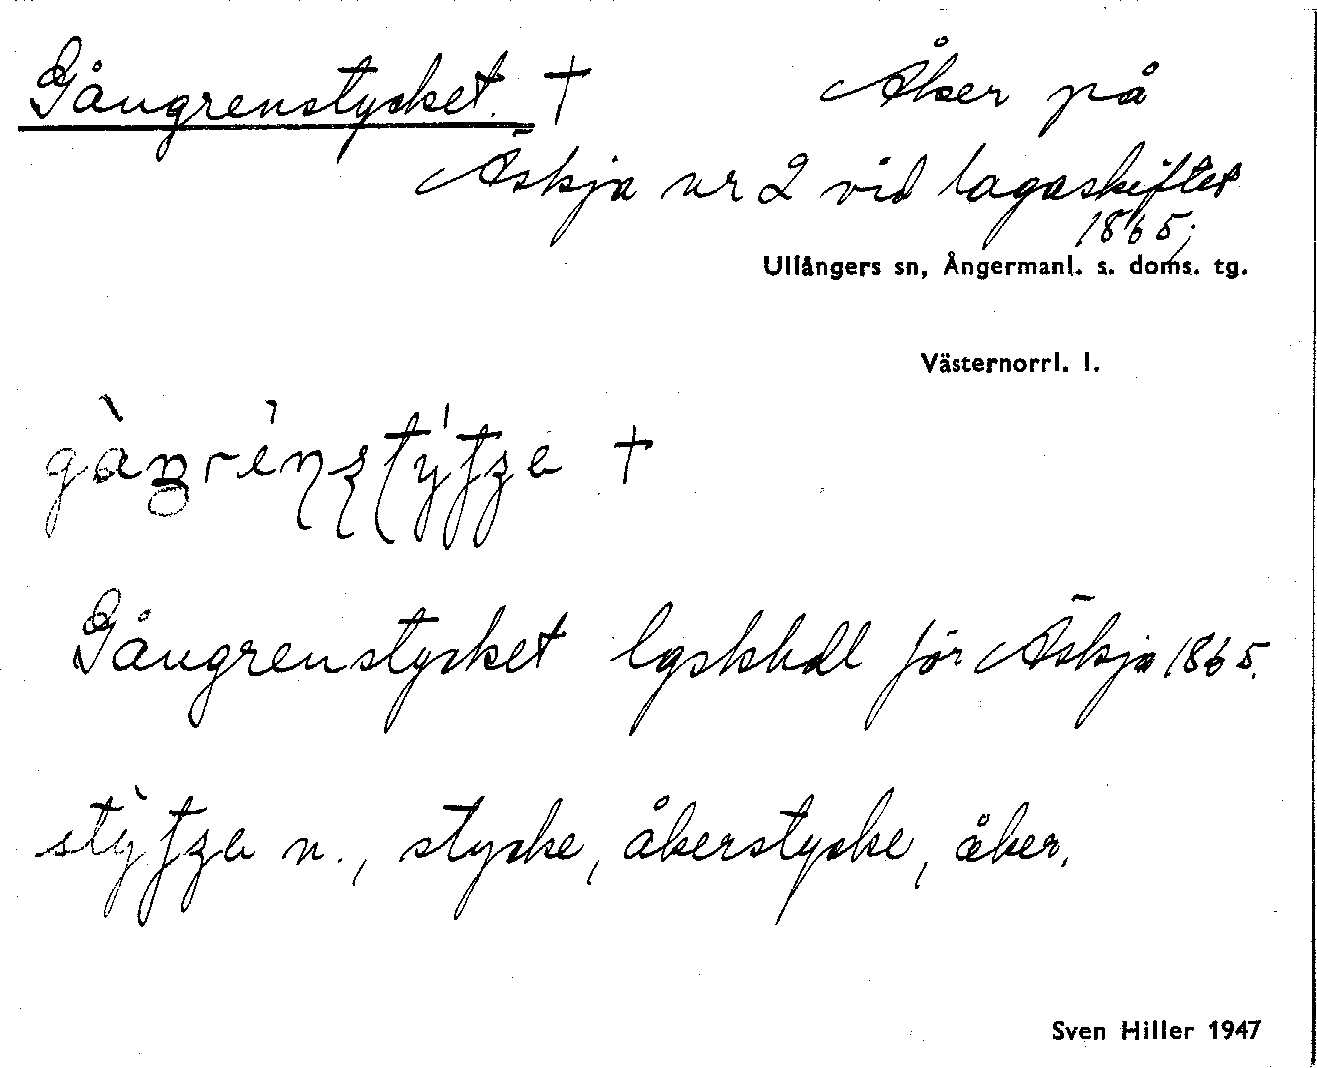 Gångrenstycket. † Åker på
Äskja nr 2 vid lagaskiftet
1865;
Ullångers sn, Ångermanl. s. doms. tg.
Västernorrl. l.
†
Gångrenstycket lgskhdl för Äskja 1865.
n., stycke, åkerstycke, åker.
Sven Hiller 1947